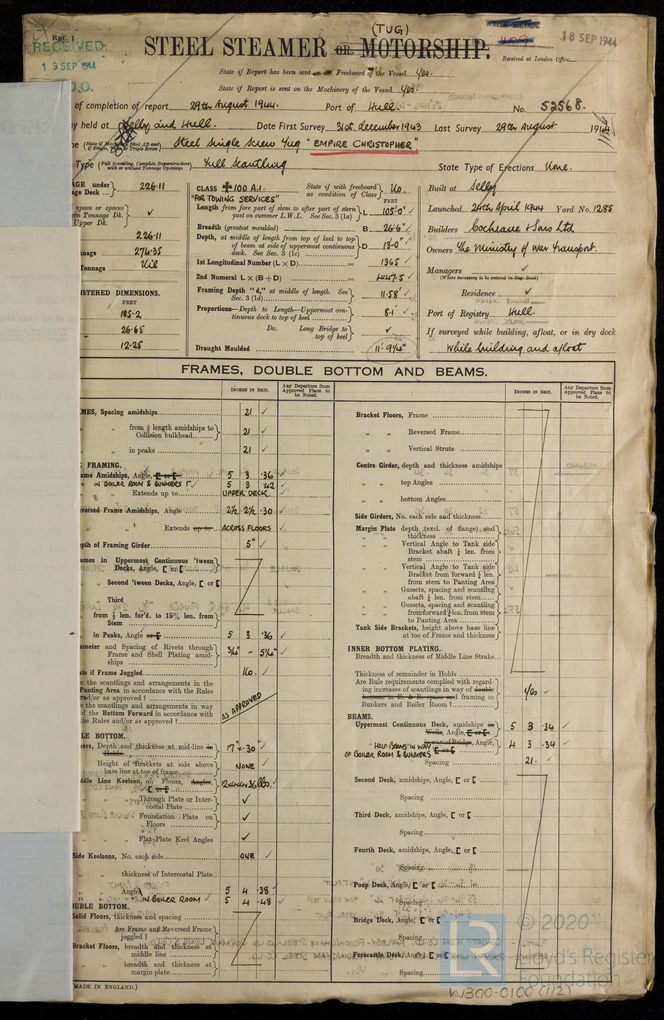 Rpt. 1
(TUG)
STEEL STEAMER OR MOTORSHIP.
RECEIVED
19 SEP 1944
D.O.
18 SEP 1944
Received at London Office
State if Report has been sent on the Freeboard of the Vessel Yes.
State if Report is sent on the Machinery of the Vessel Yes.
of completion of report 29th August 1944. Port of Hull. No. 52568.
held at Selby and Hull. Date First Survey 31st December 1943 Last Survey 29th August 1944
Steel Single Screw Tug "EMPIRE CHRISTOPHER"
Type (Full Scantling, Complete Superstructure with or without Tonnage Openings) Full Scantling State Type of Erections None.
AGE under
age Deck ... 226.11
space or spaces
en Tonnage Dk.
Upper Dk. ✓
226.11
nnage 274.35
Tonnage Nil
ISTERED DIMENSIONS.
FEET
105.2
26.65
12.25
CLASS ✠ 100 A.1. State if with freeboard as condition of Class No.
"FOR TOWING SERVICES"
Length from fore part of stem to after part of stern post on summer L.W.L. See Sec. 3 (1a) L 105'-0" ✓
Breadth (greatest moulded) B 26'-6" ✓
Depth, at middle of length from top of keel to top of beam at side of uppermost continuous deck. See Sec. 3 (1c) D 13-0" ✓
1st Longitudinal Number (L × D) 1365 ✓
2nd Numeral L × (B + D) 4147.5 ✓
Framing Depth "d," at middle of length. See Sec. 3 (1d) 11.58' ✓
Proportions—Depth to Length—Uppermost continuous deck to top of keel 8.1 ✓
Do. Long Bridge to top of keel ✓
Draught Moulded 11'-9¾"
Built at Selby
Launched 24th April 1944 Yard No. 1285
Builders Cochrane & Sons Ltd
Owners The Ministry of War Transport.
Managers ✓
(Where necessary to be entered in Reg. Book)
Residence ✓
Port of Registry Hull.
If surveyed while building, afloat, or in dry dock
While building and afloat
FRAMES, DOUBLE BOTTOM AND BEAMS.
INCHES IN SHIP. Any Departure from Approved Plans to be Noted.
AMES, Spacing amidships 21 ✓
" " from ⅗ length amidships to Collision bulkhead 21 ✓
" " in peaks 21 ✓
FRAMING.
ame Amidships, Angle, [ or [ 5 3 .36 ✓
" IN BOILER ROOM & BUNKERS 5 3 .42 ✓
" Extends up to UPPER DECK.
eversed Frame Amidships, Angle 2½ · 2½ · 30 ✓
" " Extends up to ACROSS FLOORS ✓
epth of Framing Girder 5" ✓
ames in Uppermost Continuous 'tween Decks, Angle, [ or [
" Second 'tween Decks, Angle, [ or [
" Third " "
" from ⅕ len. for'd. to 15% len. from Stem
" in Peaks, Angle or [ 5 3 .36 ✓
ameter and Spacing of Rivets through Frame and Shell Plating amidships ¾" - 5¼" ✓
ate if Frame Joggled No. ✓
e the scantlings and arrangements in the Panting Area in accordance with the Rules and/or as approved ?
e the scantlings and arrangements in way of the Bottom Forward in accordance with the Rules and/or as approved ?
AS APPROVED
LE BOTTOM.
ors, Depth and thickness at mid-line in Holds 17" × .30 ✓
Height of Brackets at side above base line at toe of frame NONE ✓
ddle Line Keelson, on Floors, Angle, [ or [
" " Through Plate or Intercostal Plate ✓
" " Foundation Plate on Floors ✓
" " Flat Plate Keel Angles ✓
Side Keelsons, No. each side ONE ✓
" " thickness of Intercostal Plate
" " Angle 5 4 .38 ✓
" IN BOILER ROOM 5 4 .48 ✓
UBLE BOTTOM.
Solid Floors, thickness and spacing
" " Are Frame and Reversed Frame joggled ?
Bracket Floors, breadth and thickness at middle line
" " breadth and thickness at margin plate
Bracket Floors, Frame
" " Reversed Frame
" " Vertical Struts
Centre Girder, depth and thickness amidships
" " top Angles
" " bottom Angles
Side Girders, No. each side and thickness
Margin Plate depth (excl. of flange) and thickness
" " Vertical Angle to Tank side Bracket abaft ¼ len. from stem
" " Vertical Angle to Tank side Bracket from forward ¼ len. from stem to Panting Area
" " Gussets, spacing and scantling abaft ¼ len. from stem
" " Gussets, spacing and scantling from forward ¼ len. from stem to Panting Area
Tank Side Brackets, height above base line at toe of Frame and thickness
INNER BOTTOM PLATING.
Breadth and thickness of Middle Line Strake
Thickness of remainder in Holds
Are Rule requirements complied with regarding increases of scantlings in way of double bottom in E. R. space and framing in Bunkers and Boiler Room? Yes ✓
BEAMS.
Uppermost Continuous Deck, amidships in Wells, Angle, [ or [ 5 3 .34 ✓
in way of Bridge, Angle, [ or [ 4 3 .34 ✓
"HALF BEAMS IN WAY OF BOILER ROOM & BUNKERS
Spacing 21. ✓
Second Deck, amidships, Angle, [ or [
Spacing
Third Deck, amidships, Angle, [ or [
Spacing
Fourth Deck, amidships, Angle, [ or [
Spacing
Poop Deck, Angle, [ or [
Spacing
Bridge Deck, Angle, [ or [
Spacing
Forecastle Deck, Angle, [ or [
Spacing
(MADE IN ENGLAND.)
© 2020
LR
Lloyd's Register
Foundation
W300-0100 (1/2)